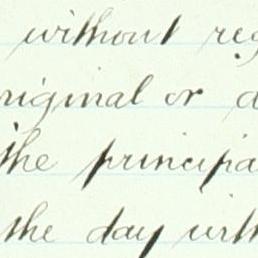 without reg
riginal or d
the principa
the day with